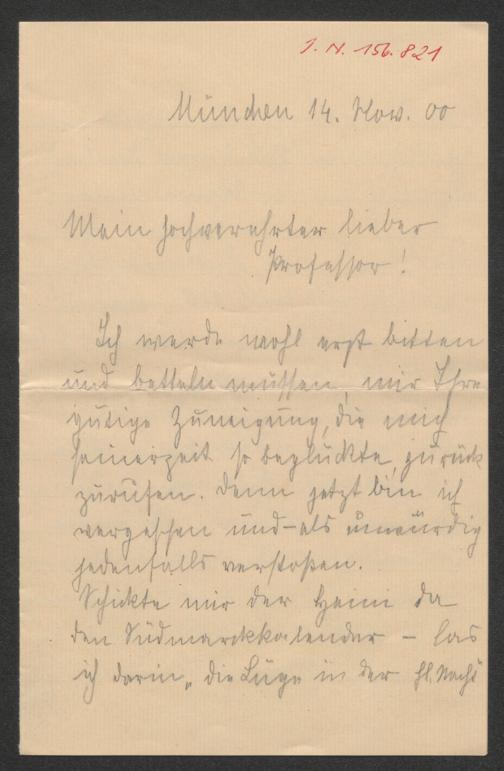 J. N. 156.821
München 14. Nov. 00
Mein hochverehrter lieber
Professor!
Ich werde wohl erst bitten
und betteln müssen, mir Ihre
gütige Zuneigung, die mich
seinerzeit so beglückte, zurück
zurufen. Denn jetzt bin ich
vergessen und - als unwürdig
jedenfalls verstoßen.
Schickte mir der Heini da
den Südmarkkalender - las
ich darin „die Lüge in der hl. Nacht"